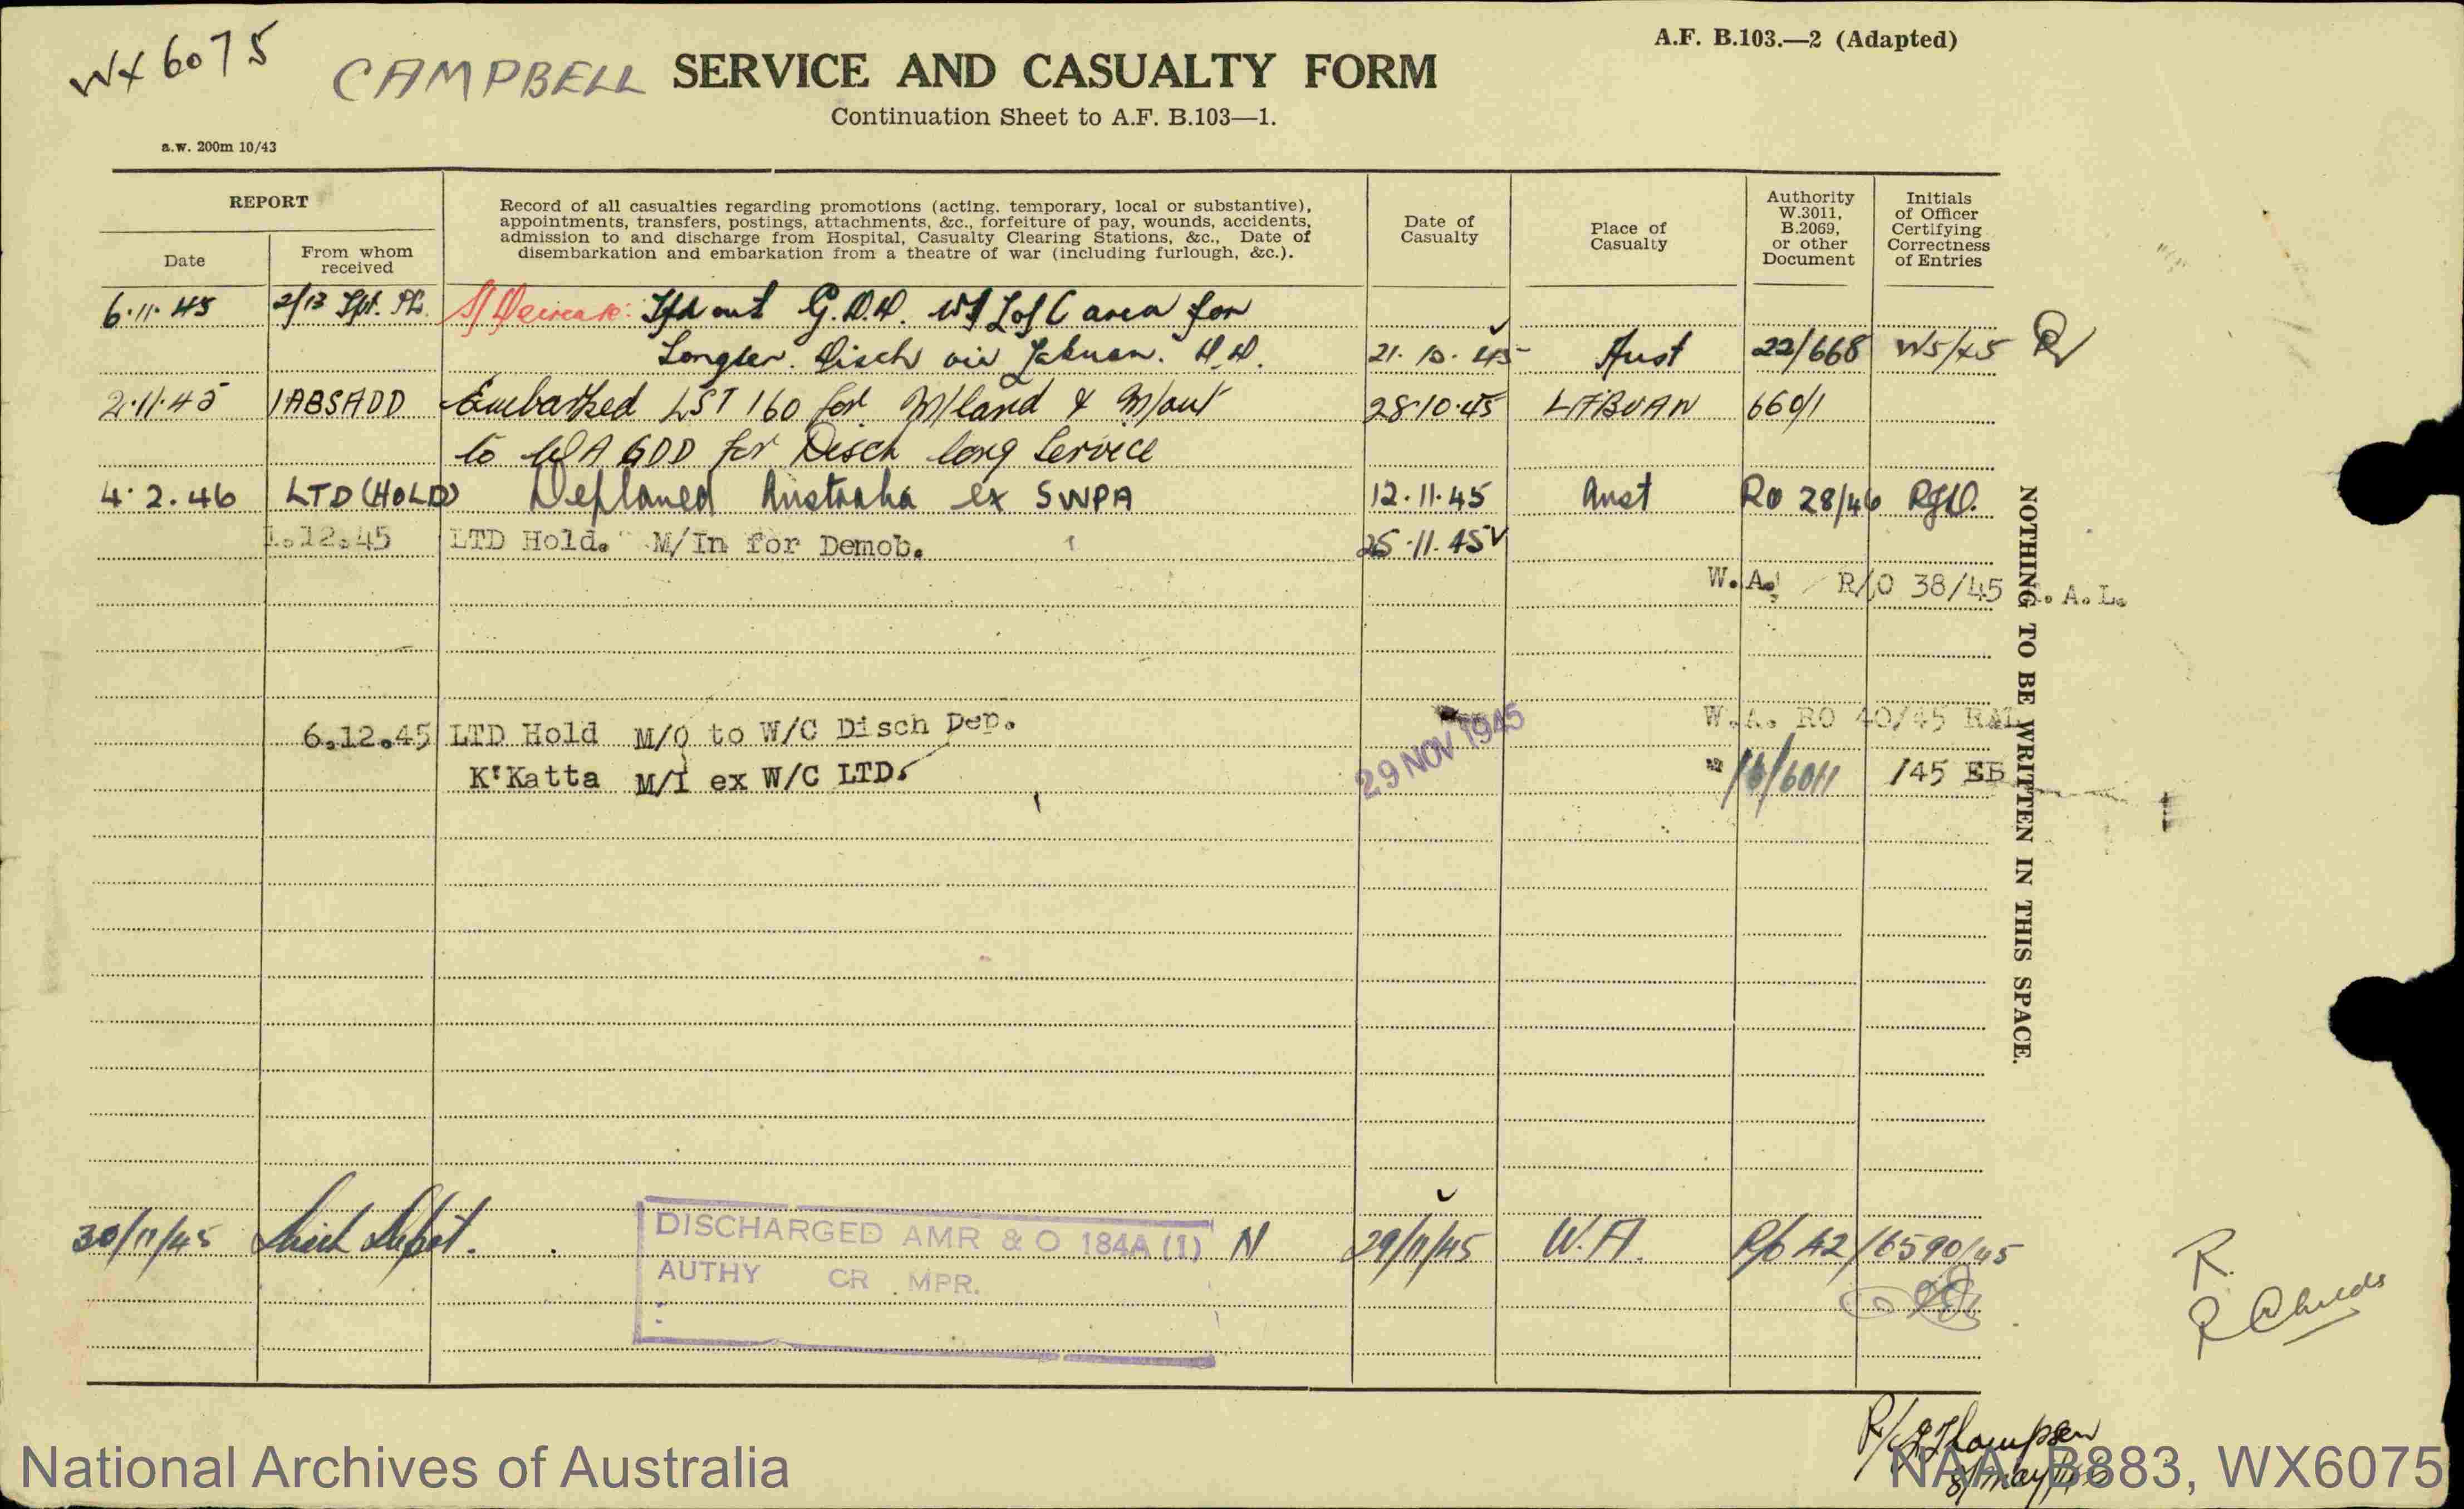 WX6075
CAMPBELL SERVICE AND CASUALTY FORM
A.F. B.103.—2 (Adapted)
Continuation Sheet to A.F. B.103—1.
a.w. 200m 10/43
REPORT
Date
From whom received
Record of all casualties regarding promotions (acting, temporary, local or substantive),
appointments, transfers, postings, attachments, &c., forfeiture of pay, wounds, accidents,
admission to and discharge from Hospital, Casualty Clearing Stations, &c., Date of
disembarkation and embarkation from a theatre of war (including furlough, &c.).
Date of Casualty
Place of Casualty
Authority W.3011, B.2069, or other Document
Initials of Officer Certifying Correctness of Entries
6.11.45 2/13 out G.D.D. L of C area for
Disch via 21.10.45 Aust 22/668 W5/45
2.11.45 1ABSADD Embarked LST 160 for M/land & M/out 28.10.45 LABUAN 660/1
to WA GDD for Disch long Service
4.2.46 LTD (HOLD) Deplaned Australia ex SWPA 12.11.45 Aust RO 28/46
1.12.45 LTD Hold. M/In for Demob. 25.11.45
W.A. R/O 38/45 A.L.
6.12.45 LTD Hold M/O to W/C Disch Dep. 29 NOV 1945 W.A. RO 40/45
K'Katta M/I ex W/C LTD. /45 EB
NOTHING TO BE WRITTEN IN THIS SPACE.
30/11/45 DISCHARGED AMR & O 184A (1) N 29/11/45 W.A. R/O 42/6590/45
AUTHY CR MPR.
R.
R Childs
Thompson
National Archives of Australia
NAA: B883, WX6075